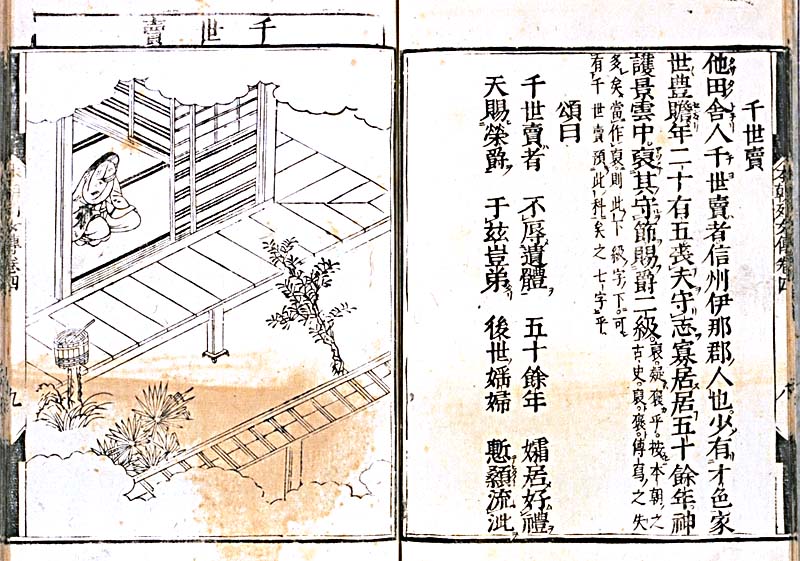 本朝列女傳卷四
八
千世賣
他田舎人千世賣者信州伊那郡人也少有才色家
世豊贍年二十有五喪夫守志寡居居五十餘年神
護景雲中裒其守節賜爵二級
裒疑褒乎按本朝之
古史裒褒傳寫之失
多矣當作裒則此下級字下可
有千世賣預此科矣之七字乎
頌曰
千世賣者 不辱遺體 五十餘年 孀居好禮
天賜榮爵 于茲豈弟 後世婬婦 慙顙流泚
千世賣
九